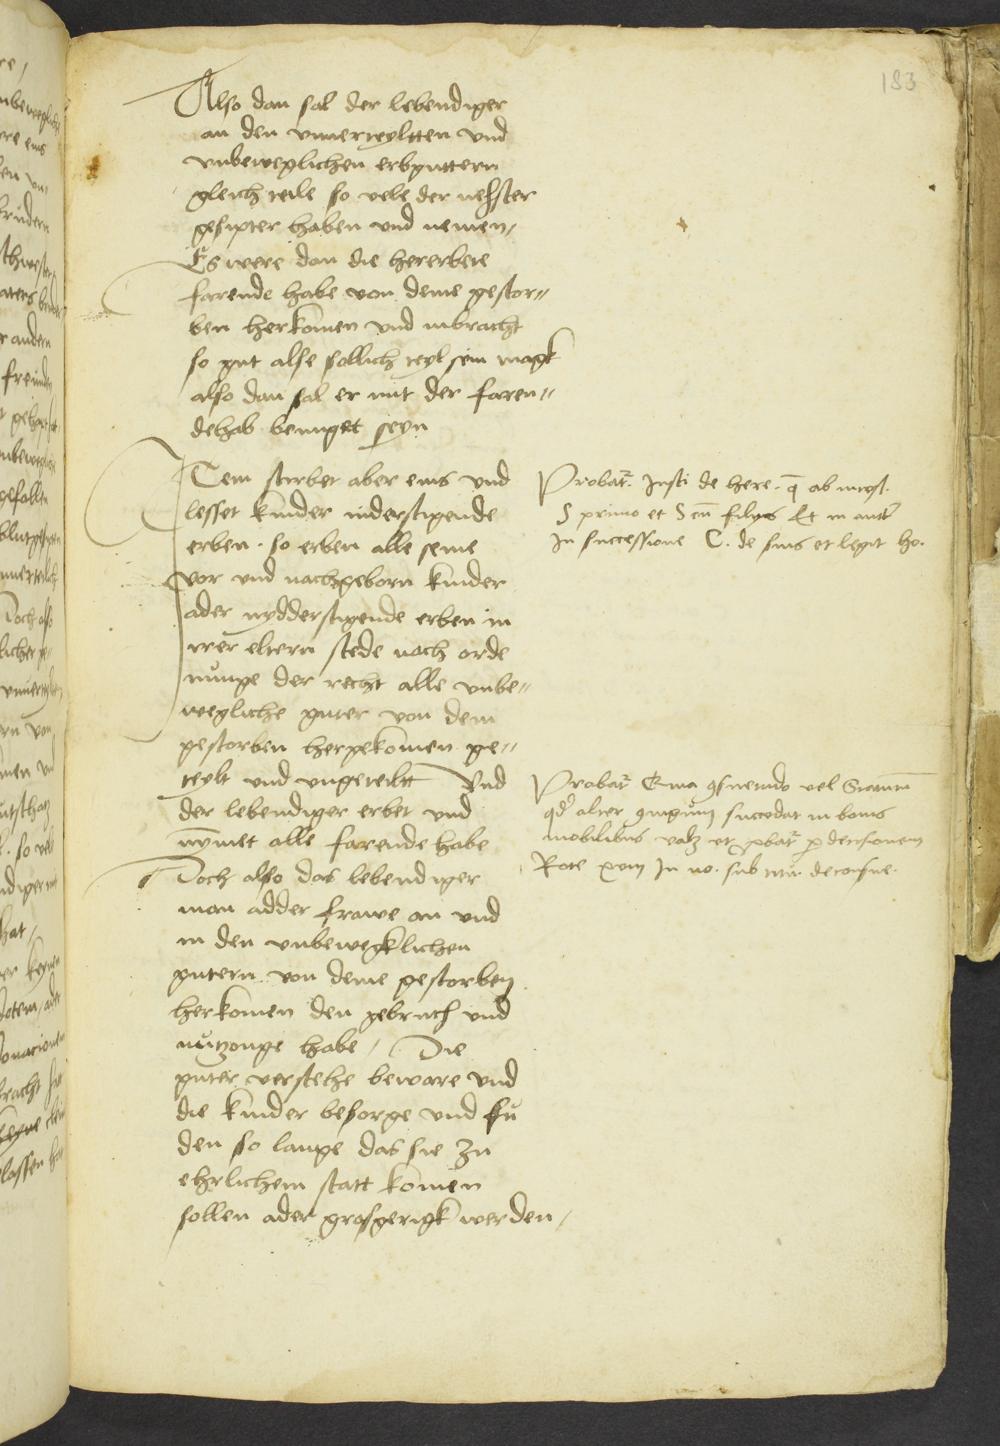 183
Also dan sal der lebendiger
an den unuerteyltten und
unbeweglichen erbguttern
gleich teile so vele der nehster
gesipter haben und nemen,
Es were dan die hererbete
farende habe von deme gestor-
ben herkomen und inbracht
so gut alse sollich teyl sein magk
also dan sal er mit der faren-
dehab benuget seyn
Item stirbet aber eins und
lesset kinder niderstigende
erben. so erben alle seine
vor und nachgeborn kinder
ader nydderstigende erben in
irer eltern stede nach orde
nunge der recht alle unbe-
wegliche guter von dem
gestorben hergekomen ge-
teylt und ungeteiltt Und
der lebendiger erbet und
nymet alle farende habe
Doch also das lebendiger
man adder frawe an und
in den unbewegklichen
gutern von deme gestorben
herkomen den gebruch und
nutzonge habe, Die
guter verstehe beware und
die kinder besorge und fu
den so lange das sie zu
ehrlichem statt komen
sollen ader grosgerigk werden,
Probatr. Insti de here. q ab intest.
§ primo et § en filius Et in autt
In successione C. de suis et legit he.
Probatr Ex consuetudo vel Statutum
qd alter coniugum succedat in bonis
mobilibus valz et probatr per decisionem
Rote In no. sub titu de consue.